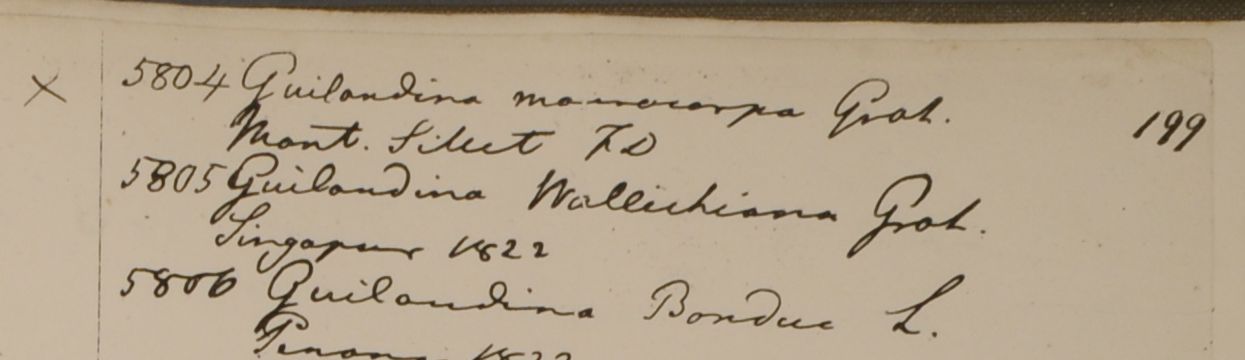 × 5804 Guilandina macrocarpa Grah. 199
Mont. Silhet FD
5805 Guilandina Wallichiana Grah.
Singapur 1822
5806 Guilandina Bonduc L.
Penang 1822